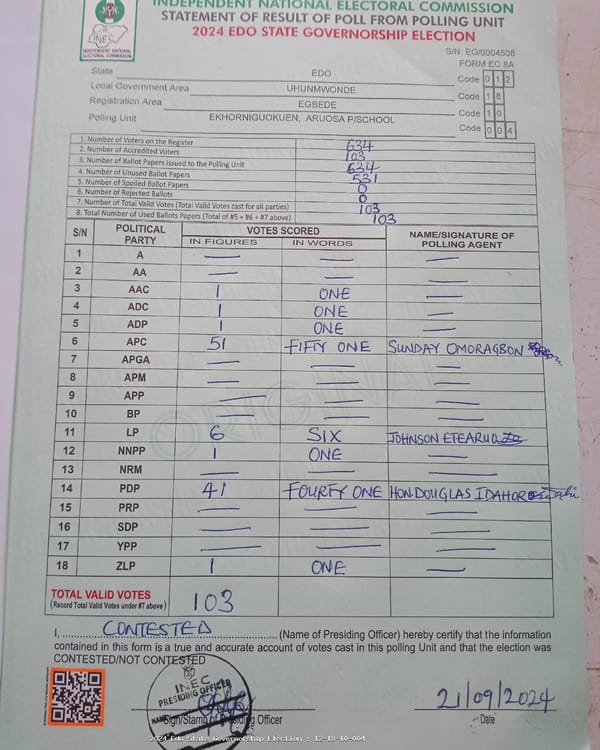 INDEPENDENT NATIONAL ELECTORAL COMMISSION
STATEMENT OF RESULT OF POLL FROM POLLING UNIT
2024 EDO STATE GOVERNORSHIP ELECTION
INEC
INDEPENDENT NATIONAL
ELECTORAL COMMISSION
S/N: EG/0004508
FORM EC 8A
State EDO Code 0 1 2
Local Government Area UHUNMWONDE Code 1 8
Registration Area EGBEDE Code 1 0
Polling Unit EKHORNIGUOKUEN, ARUOSA P/SCHOOL Code 0 0 4
1. Number of Voters on the Register 634
2. Number of Accredited Voters 103
3. Number of Ballot Papers Issued to the Polling Unit 634
4. Number of Unused Ballot Papers 531
5. Number of Spoiled Ballot Papers 0
6. Number of Rejected Ballots 0
7. Number of Total Valid Votes (Total Valid Votes cast for all parties) 103
8. Total Number of Used Ballots Papers (Total of #5 + #6 + #7 above) 103
S/N POLITICAL PARTY VOTES SCORED NAME/SIGNATURE OF POLLING AGENT
IN FIGURES IN WORDS
1 A — — —
2 AA — — —
3 AAC 1 ONE —
4 ADC 1 ONE —
5 ADP 1 ONE —
6 APC 51 FIFTY ONE SUNDAY OMORAGBON
7 APGA — — —
8 APM — — —
9 APP — — —
10 BP — — —
11 LP 6 SIX JOHNSON ETEARUO
12 NNPP 1 ONE —
13 NRM — — —
14 PDP 41 FOURTY ONE HON DOUGLAS IDAHOR
15 PRP — — —
16 SDP — — —
17 YPP — — —
18 ZLP 1 ONE —
ORIGINAL
TOTAL VALID VOTES 103
(Record Total Valid Votes under #7 above)
I, CONTESTED (Name of Presiding Officer) hereby certify that the information
contained in this form is a true and accurate account of votes cast in this polling Unit and that the election was
CONTESTED/NOT CONTESTED
INEC
PRESIDING OFFICER
21/09/2024
Sign/Stamp of Presiding Officer Date
2024 Edo State Governorship Election : 12-18-10-004